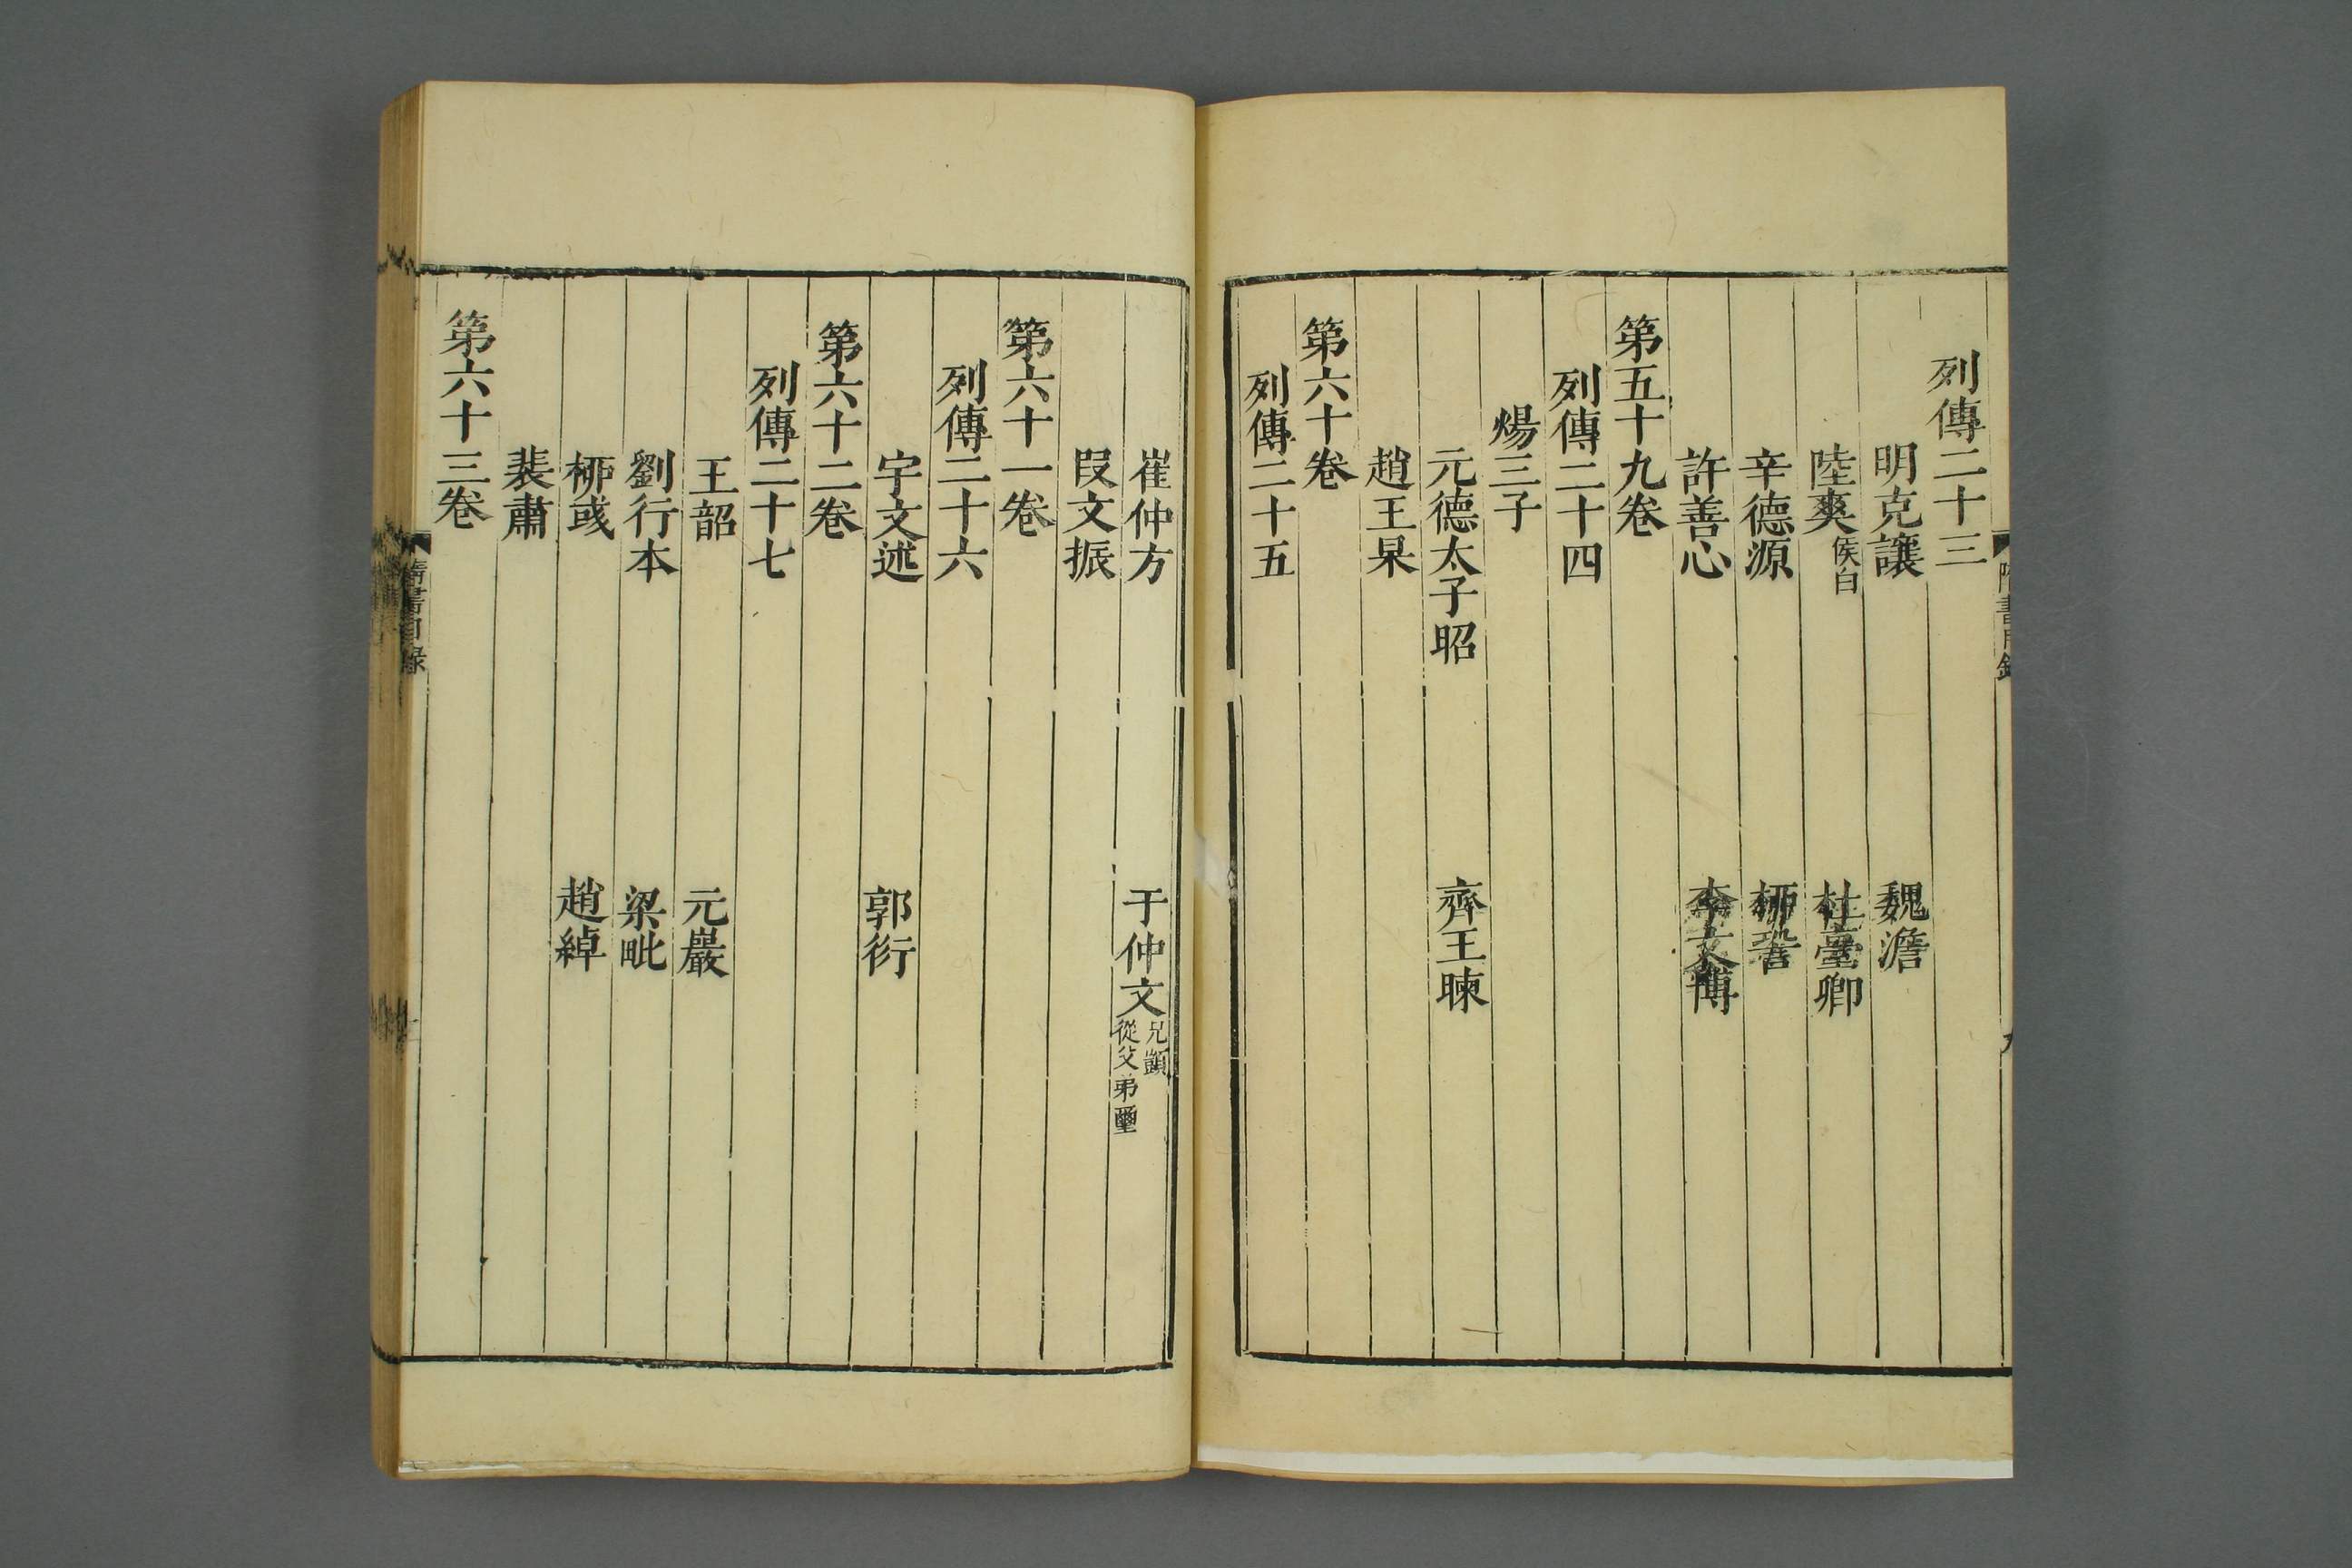 列傳二十三
明克讓 魏澹
陸爽侯白 杜臺卿
辛德源 柳䛒
許善心 李文博
第五十九卷
列傳二十四
煬三子
元德太子昭 齊王暕
趙王杲
第六十卷
列傳二十五
崔仲方 于仲文兄顗
從父弟璽
段文振
第六十一卷
列傳二十六
宇文述 郭衍
第六十二卷
列傳二十七
王韶 元巖
劉行本 梁毗
柳彧 趙綽
裴肅
第六十三卷
隋書目錄